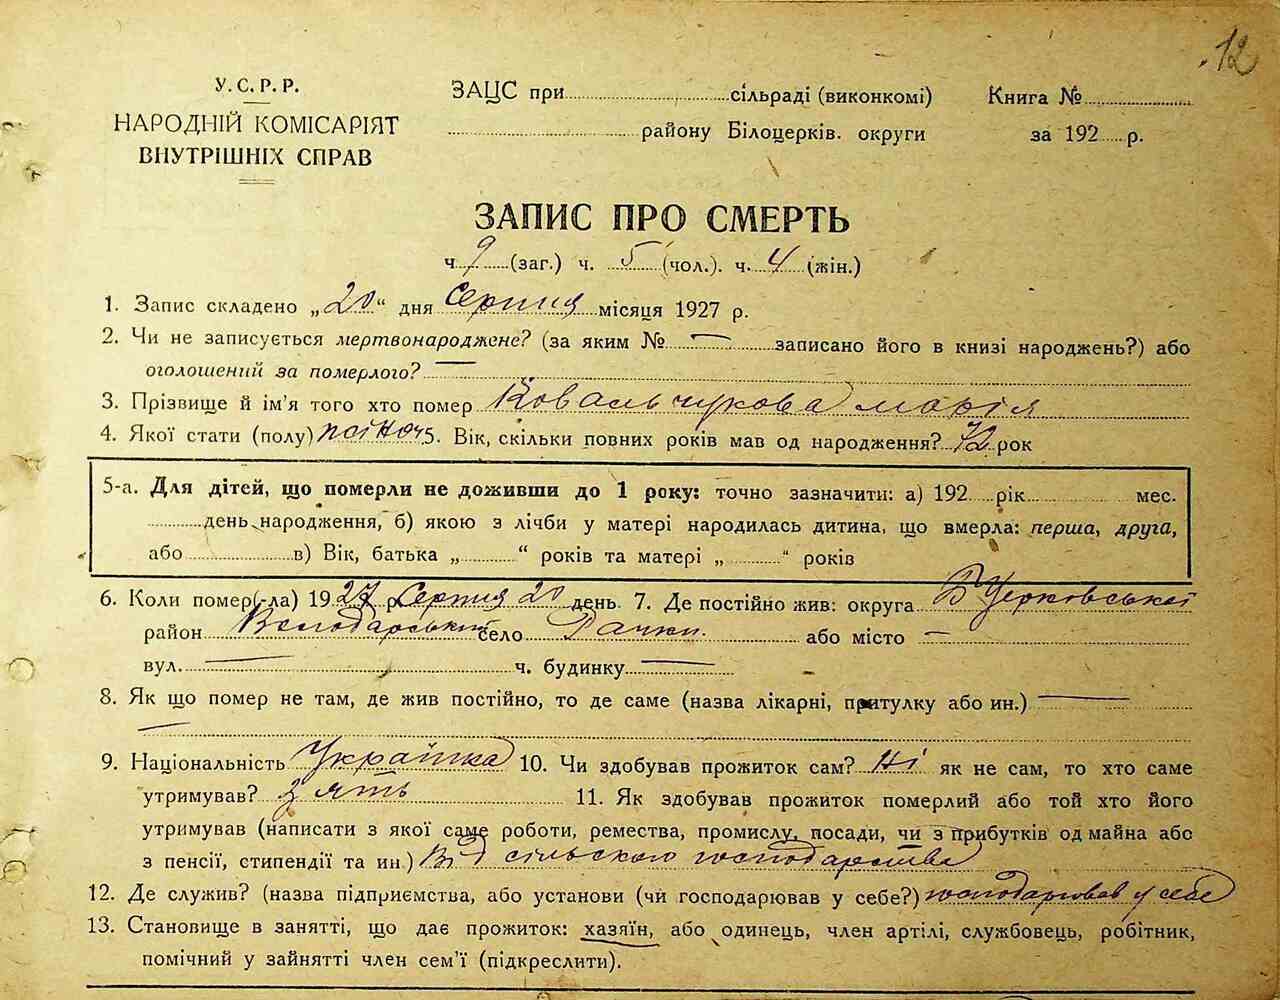 12
У.С.Р.Р.
НАРОДНІЙ КОМІСАРІЯТ
ВНУТРІШНІХ СПРАВ
ЗАЦС при сільраді (виконкомі)
району Білоцерків. округи
Книга №
за 192 р.
ЗАПИС ПРО СМЕРТЬ
ч. 9 (заг.) ч. 5 (чол.). ч. 4 (жін.)
1. Запис складено „20“ дня Серпня місяця 1927 р.
2. Чи не записується мертвонароджене? (за яким № — записано його в книзі народжень?) або
оголошений за померлого? —
3. Прізвище й ім'я того хто помер Ковальчукова Марія
4. Якої стати (полу) жіноч 5. Вік, скільки повних років мав од народження? 72 рок
5-а. Для дітей, що померли не доживши до 1 року: точно зазначити: а) 192 рік мес.
день народження, б) якою з лічби у матері народилась дитина, що вмерла: перша, друга,
або в) Вік, батька „ “ років та матері „ “ років
6. Коли помер(-ла) 1927 р. Серпня 20 день. 7. Де постійно жив: округа Б Церковської
район Володарський село Рачки. або місто —
вул. — ч. будинку —
8. Як що помер не там, де жив постійно, то де саме (назва лікарні, притулку або ин.) —
—
9. Національність Українка 10. Чи здобував прожиток сам? Ні як не сам, то хто саме
утримував? зять 11. Як здобував прожиток померлий або той хто його
утримував (написати з якої саме роботи, ремества, промислу, посади, чи з прибутків од майна або
з пенсії, стипендії та ин.) Від сільського господарства
12. Де служив? (назва підприємства, або установи (чи господарював у себе?) господарював у себе
13. Становище в занятті, що дає прожиток: хазяїн, або одинець, член артілі, службовець, робітник,
помічний у зайнятті член сем'ї (підкреслити).